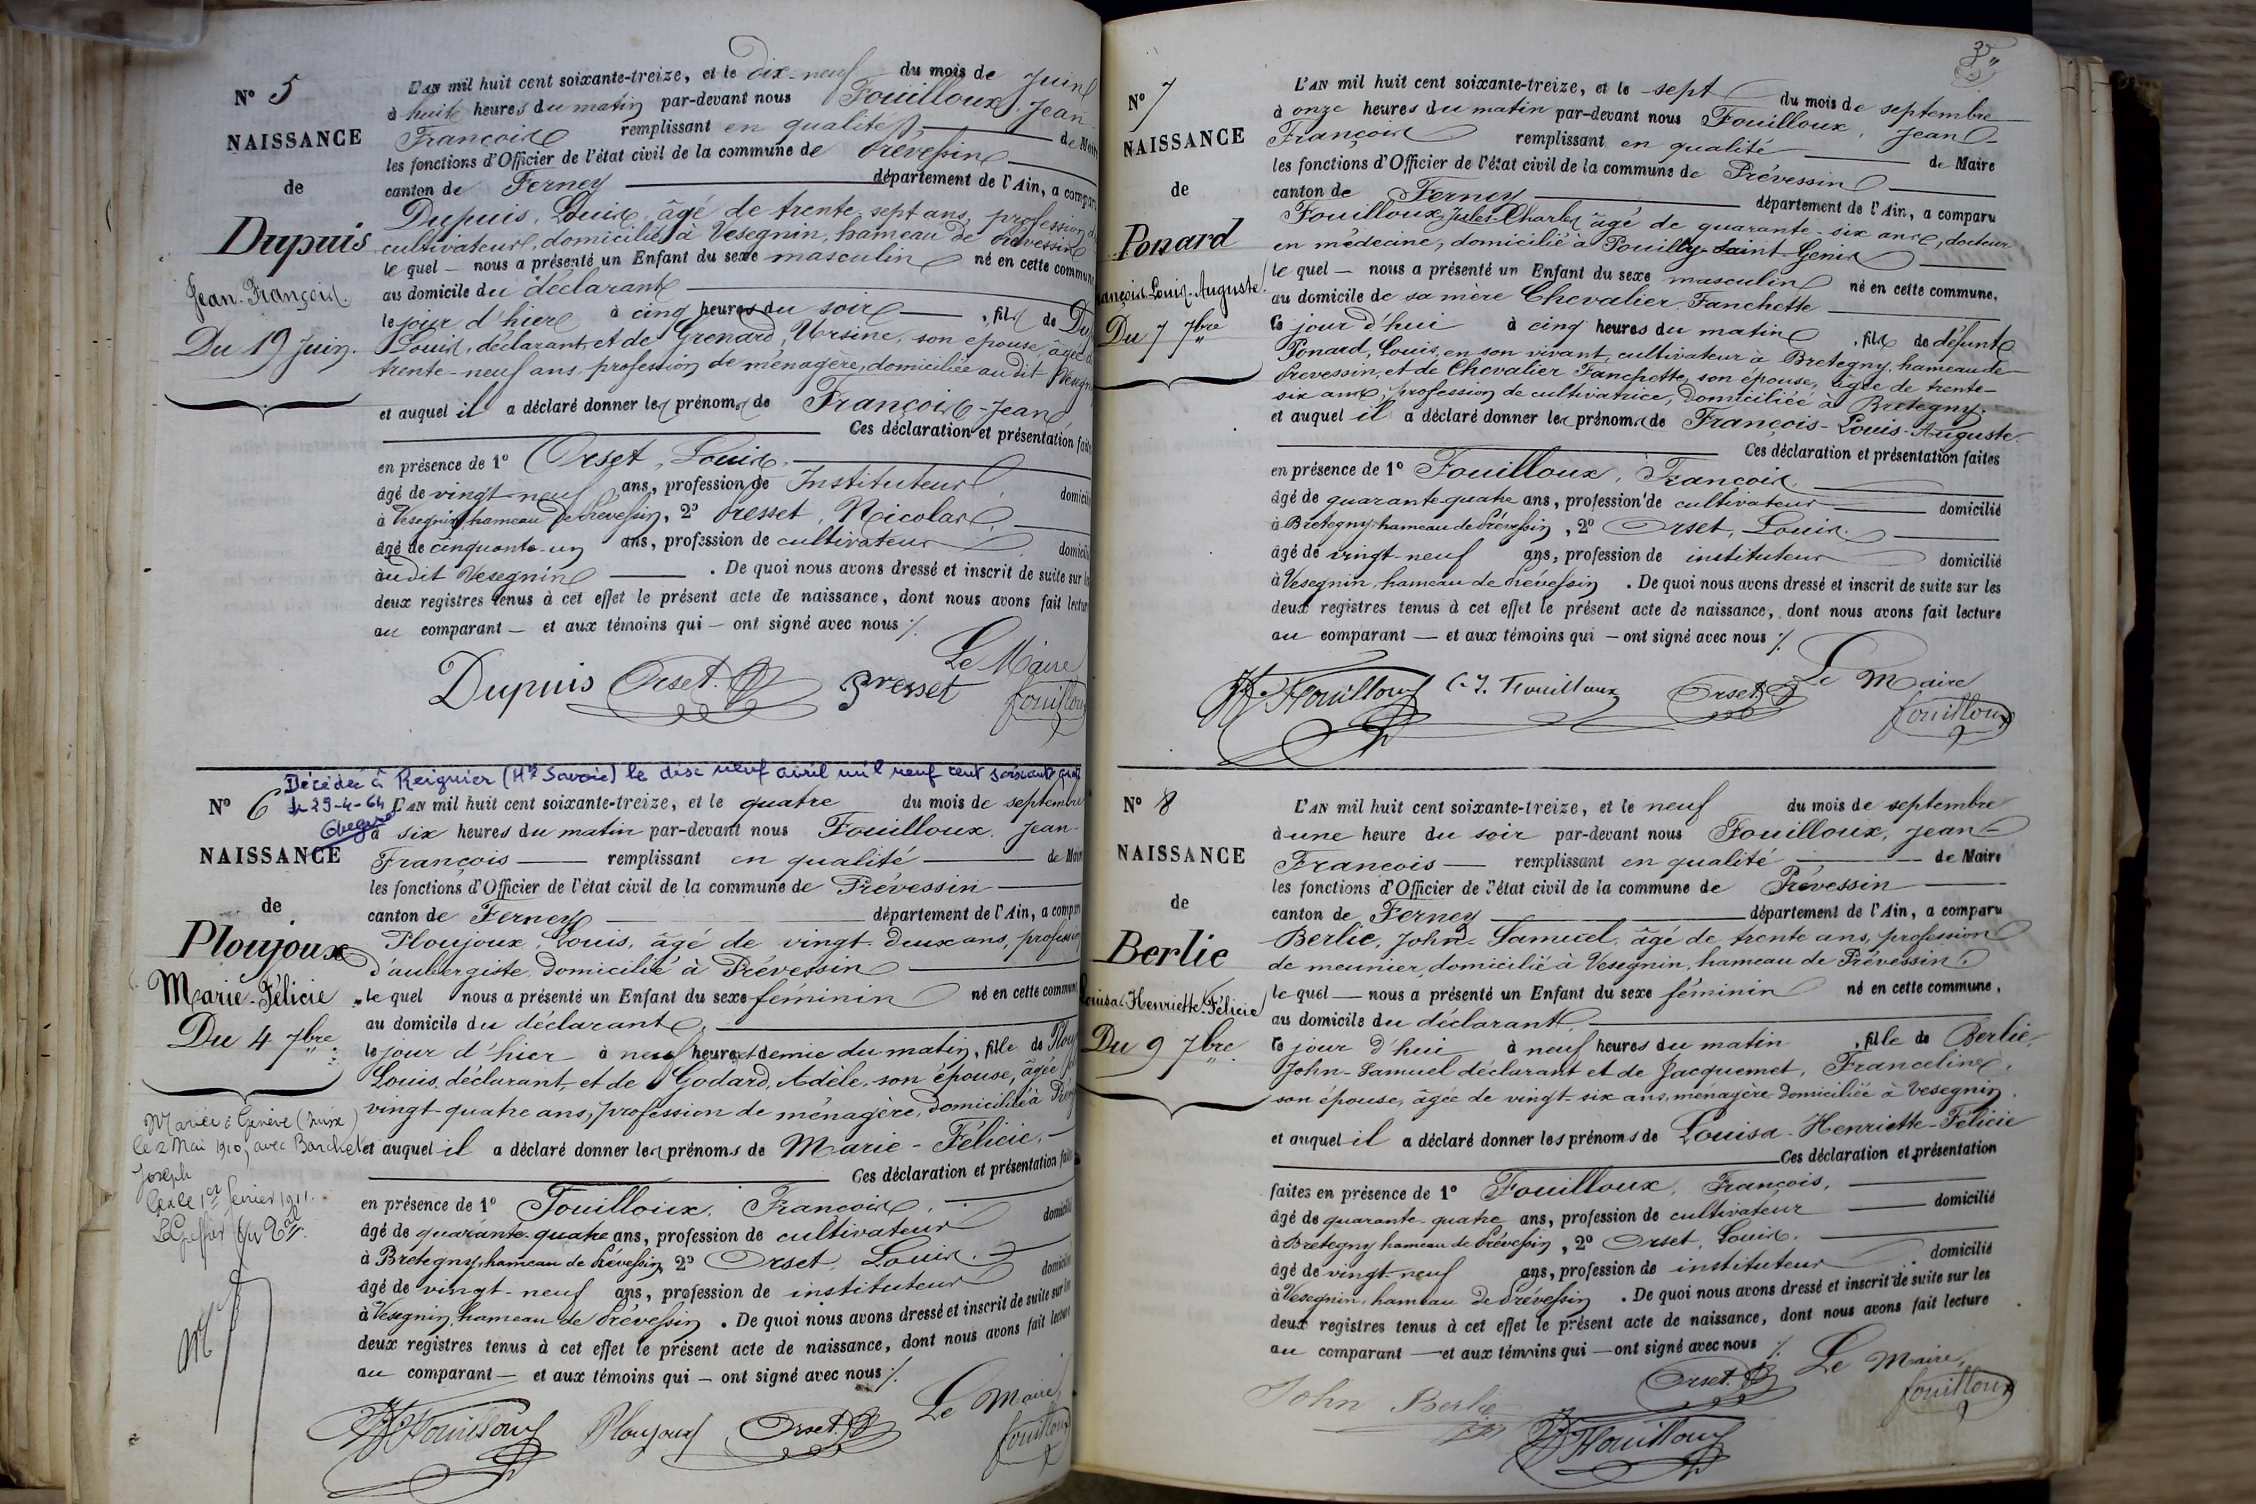 N° 5
NAISSANCE
de
Dupuis
Jean-François.
Du 19 Juin.
L'AN mil huit cent soixante-treize, et le dix-neuf du mois de Juin
à huit heures du matin par-devant nous Fouilloux, Jean-
François remplissant en qualité de Maire
les fonctions d'Officier de l'état civil de la commune de Prévessin
canton de Ferney département de l'Ain, a comparu
Dupuis, Louis, âgé de trente-sept ans, profession de
cultivateur, domicilié à Vesegnin, hameau de Prévessin
le quel nous a présenté un Enfant du sexe masculin né en cette commune
au domicile du déclarant
le jour d'hier à cinq heures du soir, fils de Du
Louis, déclarant et de Grenard, Ursine, son épouse, âgée de
trente-neuf ans, profession de ménagère, domiciliée audit Vesegn
et auquel il a déclaré donner les prénoms de François-Jean
Ces déclaration et présentation faites
en présence de 1° Orset, Louis,
âgé de vingt-neuf ans, profession de Instituteur, domicilié
à Vesegnin, hameau de Prévessin, 2° Presset, Nicolas,
âgé de cinquante-un ans, profession de cultivateur domicilié
audit Vesegnin. De quoi nous avons dressé et inscrit de suite sur les
deux registres tenus à cet effet le présent acte de naissance, dont nous avons fait lecture
au comparant — et aux témoins qui — ont signé avec nous ./.
Le Maire
Dupuis Orset. Presset Fouilloux
Décédée à Reignier (Hte Savoie) le dix neuf avril mil neuf cent soixante quat
le 29-4-64
N° 6
NAISSANCE
de
Ploujoux
Marie-Félicie
Du 4 7bre
Mariée à Genève (Suisse)
le 2 Mai 1910, avec Barchet
Joseph
1er février 1911.
Le Greffier
L'AN mil huit cent soixante-treize, et le quatre du mois de septembre
à six heures du matin par-devant nous Fouilloux, Jean-
François remplissant en qualité de Maire
les fonctions d'Officier de l'état civil de la commune de Prévessin
canton de Ferney département de l'Ain, a comparu
Ploujoux, Louis, âgé de vingt-deux ans, profession
d'aubergiste, domicilié à Prévessin
le quel nous a présenté un Enfant du sexe féminin né en cette commune
au domicile du déclarant,
le jour d'hier à neuf heures et demie du matin, fille de Plouj
Louis, déclarant et de Godard, Adèle, son épouse, âgée de
vingt-quatre ans, profession de ménagère, domiciliée à Prév
et auquel il a déclaré donner les prénoms de Marie-Félicie,
Ces déclaration et présentation faites
en présence de 1° Fouilloux, François,
âgé de quarante-quatre ans, profession de cultivateur domicilié
à Bretegny, hameau de Prévessin, 2° Orset, Louis.
âgé de vingt-neuf ans, profession de instituteur domicilié
à Vesegnin, hameau de Prévessin. De quoi nous avons dressé et inscrit de suite sur les
deux registres tenus à cet effet le présent acte de naissance, dont nous avons fait lecture
au comparant — et aux témoins qui — ont signé avec nous ./.
Le Maire
Fouilloux Ploujoux Orset. Fouilloux
N° 7
NAISSANCE
de
Ponard
François-Louis-Auguste.
Du 7 7bre
L'AN mil huit cent soixante-treize, et le sept du mois de septembre
à onze heures du matin par-devant nous Fouilloux, Jean-
François remplissant en qualité de Maire
les fonctions d'Officier de l'état civil de la commune de Prévessin
canton de Ferney département de l'Ain, a comparu
Fouilloux, Jules-Charles âgé de quarante-six ans, docteur
en médecine, domicilié à Pouilly-Saint-Genis
le quel — nous a présenté un Enfant du sexe masculin né en cette commune,
au domicile de sa mère Chevalier Fanchette
le jour d'hui à cinq heures du matin, fils de défunt
Ponard, Louis, en son vivant, cultivateur à Bretegny, hameau de
Prévessin, et de Chevalier Fanchette, son épouse, âgée de trente-
six ans, profession de cultivatrice, domiciliée à Bretegny.
et auquel il a déclaré donner les prénoms de François-Louis-Auguste.
Ces déclaration et présentation faites
en présence de 1° Fouilloux, François,
âgé de quarante-quatre ans, profession de cultivateur domicilié
à Bretegny, hameau de Prévessin, 2° Orset, Louis.
âgé de vingt-neuf ans, profession de instituteur domicilié
à Vesegnin, hameau de Prévessin. De quoi nous avons dressé et inscrit de suite sur les
deux registres tenus à cet effet le présent acte de naissance, dont nous avons fait lecture
au comparant — et aux témoins qui — ont signé avec nous ./.
Le Maire
Fouilloux C.J. Fouilloux Orset. Fouilloux
N° 8
NAISSANCE
de
Berlie
Louisa-Henriette-Félicie
Du 9 7bre
L'AN mil huit cent soixante-treize, et le neuf du mois de septembre
à une heure du soir par-devant nous Fouilloux, Jean-
François — remplissant en qualité de Maire
les fonctions d'Officier de l'état civil de la commune de Prévessin
canton de Ferney département de l'Ain, a comparu
Berlie, John-Samuel, âgé de trente ans, profession
de meunier, domicilié à Vesegnin, hameau de Prévessin,
le quel — nous a présenté un Enfant du sexe féminin né en cette commune,
au domicile du déclarant,
le jour d'hui à neuf heures du matin, fille de Berlie,
John-Samuel déclarant et de Jacquemet, Franceline,
son épouse, âgée de vingt-six ans, ménagère domiciliée à Vesegnin.
et auquel il a déclaré donner les prénoms de Louisa-Henriette-Félicie
Ces déclaration et présentation
faites en présence de 1° Fouilloux, François,
âgé de quarante-quatre ans, profession de cultivateur domicilié
à Bretegny hameau de Prévessin, 2° Orset, Louis.
âgé de vingt-neuf ans, profession de instituteur domicilié
à Vesegnin, hameau de Prévessin. De quoi nous avons dressé et inscrit de suite sur les
deux registres tenus à cet effet le présent acte de naissance, dont nous avons fait lecture
au comparant — et aux témoins qui — ont signé avec nous ./.
Orset. Le Maire,
John Berlie Fouilloux
Fouilloux